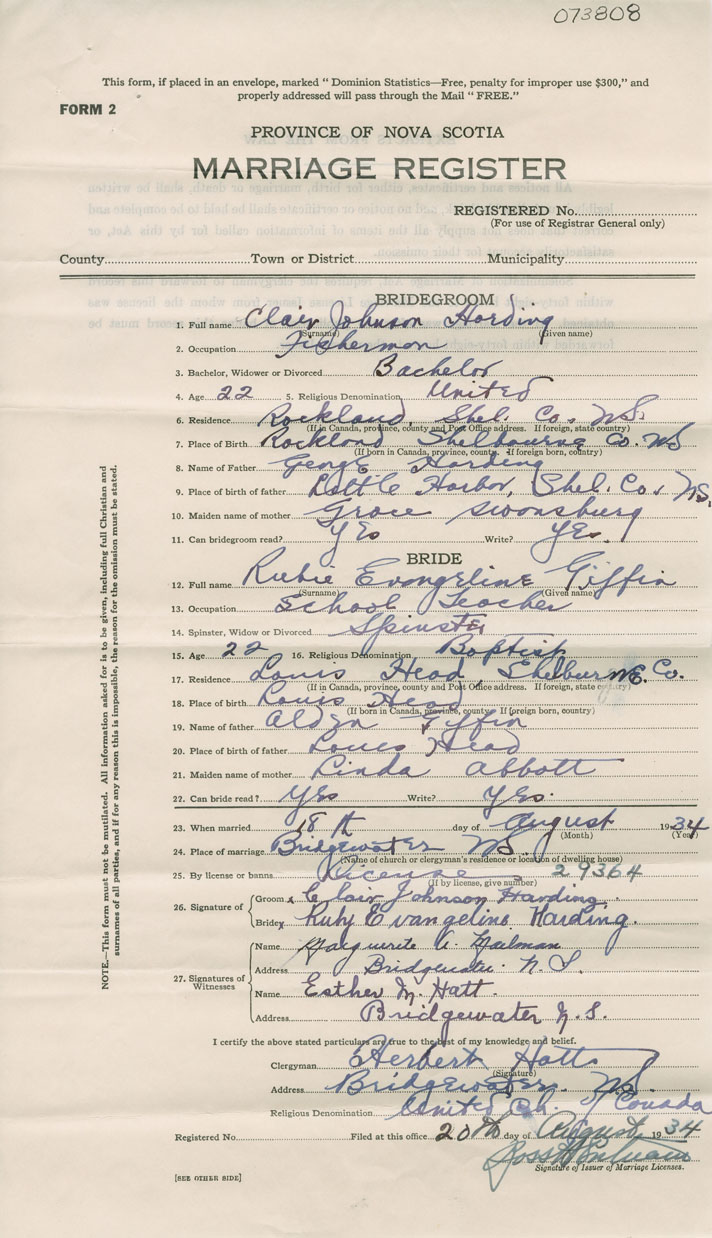 073808
This form, if placed in an envelope, marked "Dominion Statistics—Free, penalty for improper use $300," and
properly addressed will pass through the Mail "FREE."
FORM 2
PROVINCE OF NOVA SCOTIA
MARRIAGE REGISTER
REGISTERED No.
(For use of Registrar General only)
County Town or District Municipality
BRIDEGROOM
1. Full name Clair Johnson Harding
(Surname) (Given name)
2. Occupation Fisherman
3. Bachelor, Widower or Divorced Bachelor
4. Age 22 5. Religious Denomination United
6. Residence Rockland, Shel. Co. N.S.
(If in Canada, province, county and Post Office address. If foreign, state country)
7. Place of Birth Rockland Shelbourne Co. NS
(If born in Canada, province, county. If foreign born, country)
8. Name of Father George Harding
9. Place of birth of father Little Harbor, Shel. Co. N.S.
10. Maiden name of mother Grace Swansburg
11. Can bridegroom read? Yes Write? Yes.
BRIDE
12. Full name Rubie Evangeline Giffin
(Surname) (Given name)
13. Occupation School Teacher
14. Spinster, Widow or Divorced Spinster
15. Age 22 16. Religious Denomination Baptist
17. Residence Louis Head, Shelburne Co.
(If in Canada, province, county and Post Office address. If foreign, state country)
18. Place of Birth Louis Head
(If born in Canada, province, county. If foreign born, country)
19. Name of father Alden Giffin
20. Place of birth of father Louis Head
21. Maiden name of mother Linda Abbott
22. Can bride read? Yes Write? Yes.
23. When married 18th day of August 1934
(Month) (Year)
24. Place of marriage Bridgewater N.S.
(Name of church or clergyman's residence or location of dwelling house)
25. By license or banns License 29364
(If by license, give number)
26. Signature of
Groom x Clair Johnson Harding.
Bride x Ruby Evangeline Harding.
27. Signatures of Witnesses
Name Marguerite A. Mailman
Address Bridgewater N.S.
Name Esther M. Hatt.
Address Bridgewater N.S.
I certify the above stated particulars are true to the best of my knowledge and belief.
Clergyman Herbert Hatt
(Signature)
Address Bridgewater. N.S.
Religious Denomination United Ch. of Canada
Registered No. Filed at this office 20th day of August 1934
Signature of Issuer of Marriage Licenses.
[SEE OTHER SIDE]
NOTE.—This form must not be mutilated. All information asked for is to be given, including full Christian and
surnames of all parties, and if for any reason this is impossible, the reason for the omission must be stated.